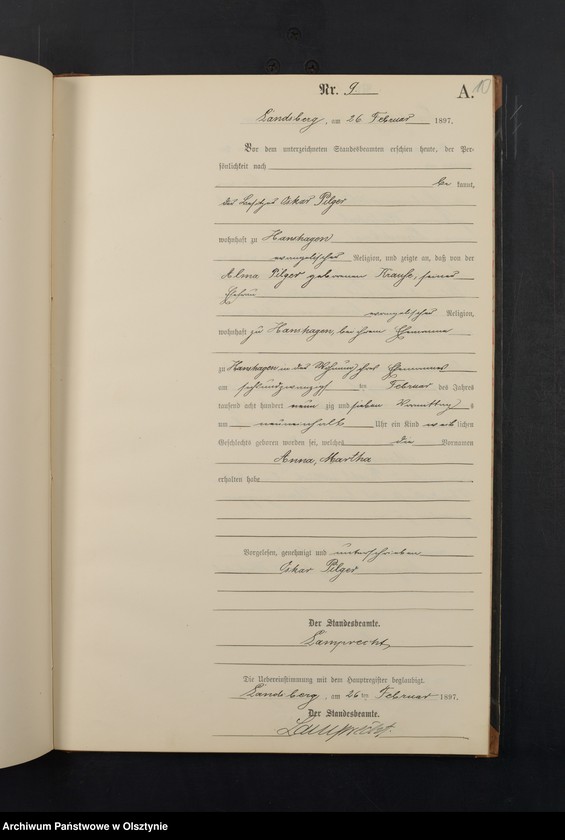 Nr. 9
A. 10
Landsberg, am 26 Februar 1897.
Vor dem unterzeichneten Standesbeamten erschien heute, der Per-
sönlichkeit nach
be kannt,
der Besitzer Oskar Pilger
wohnhaft zu Hanshagen
evangelischer Religion, und zeigte an, daß von der
Alma Pilger geborenen Krause, seiner
Ehefrau
evangelischer Religion,
wohnhaft zu Hanshagen, bei ihrem Ehemanne
zu Hanshagen in der Wohnung ihres Ehemannes
am ten Februar des Jahres
tausend acht hundert neun zig und sieben Vormittag s
um neuneinhalb Uhr ein Kind weib lichen
Geschlechts geboren worden sei, welches die Vornamen
Anna, Martha
erhalten habe
Vorgelesen, genehmigt und unterschrieben
Oskar Pilger
Der Standesbeamte.
Lamprecht
Die Uebereinstimmung mit dem Hauptregister beglaubigt.
Landsberg, am 26 ten Februar 1897.
Der Standesbeamte.
Lamprecht
Archiwum Państwowe w Olsztynie